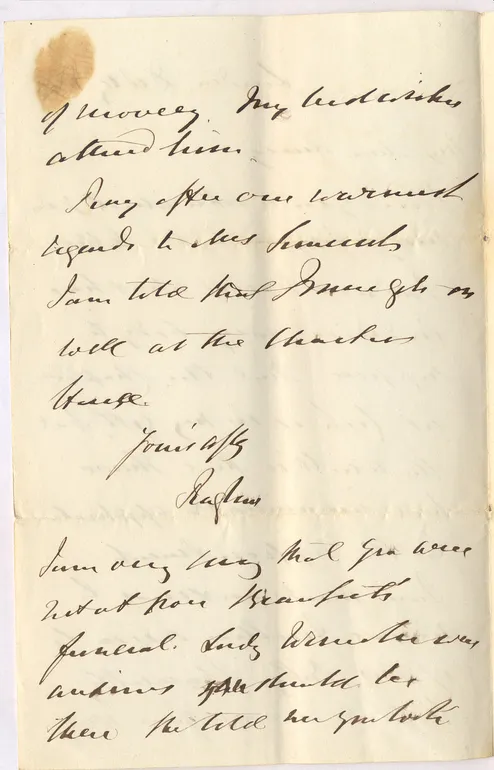 of money. My best wishes
attend him.
Pray offer our warmest
regards to Mrs
I am told that gets on
well at the Charter
House.
Yours affly
Raglan
I am very sorry that you were
not at poor Beaufort's
funeral. Lady was
anxious you should be
there She told me you